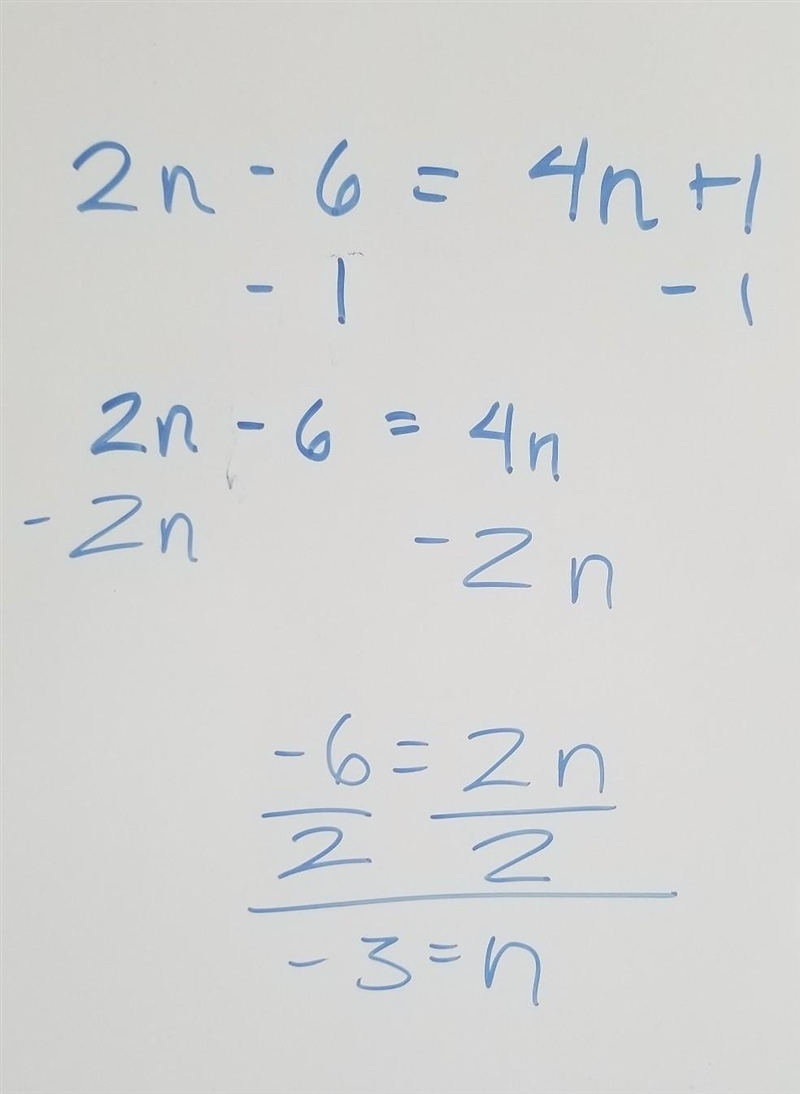 2n - 6 = 4n + 1
- 1 - 1
2n - 6 = 4n
- 2n - 2n
-6 = 2n
2 2
- 3 = n